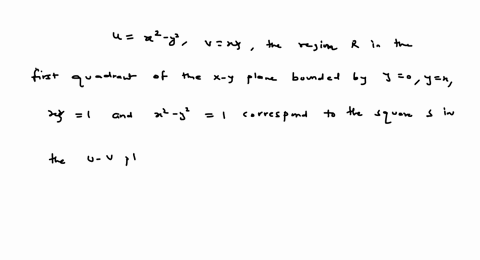 u = x²-y², v = xy, the region R in the
first quadrant of the x-y plane bounded by y=0, y=x,
xy = 1 and x²-y² = 1 correspond to the square s in
the u-v pl